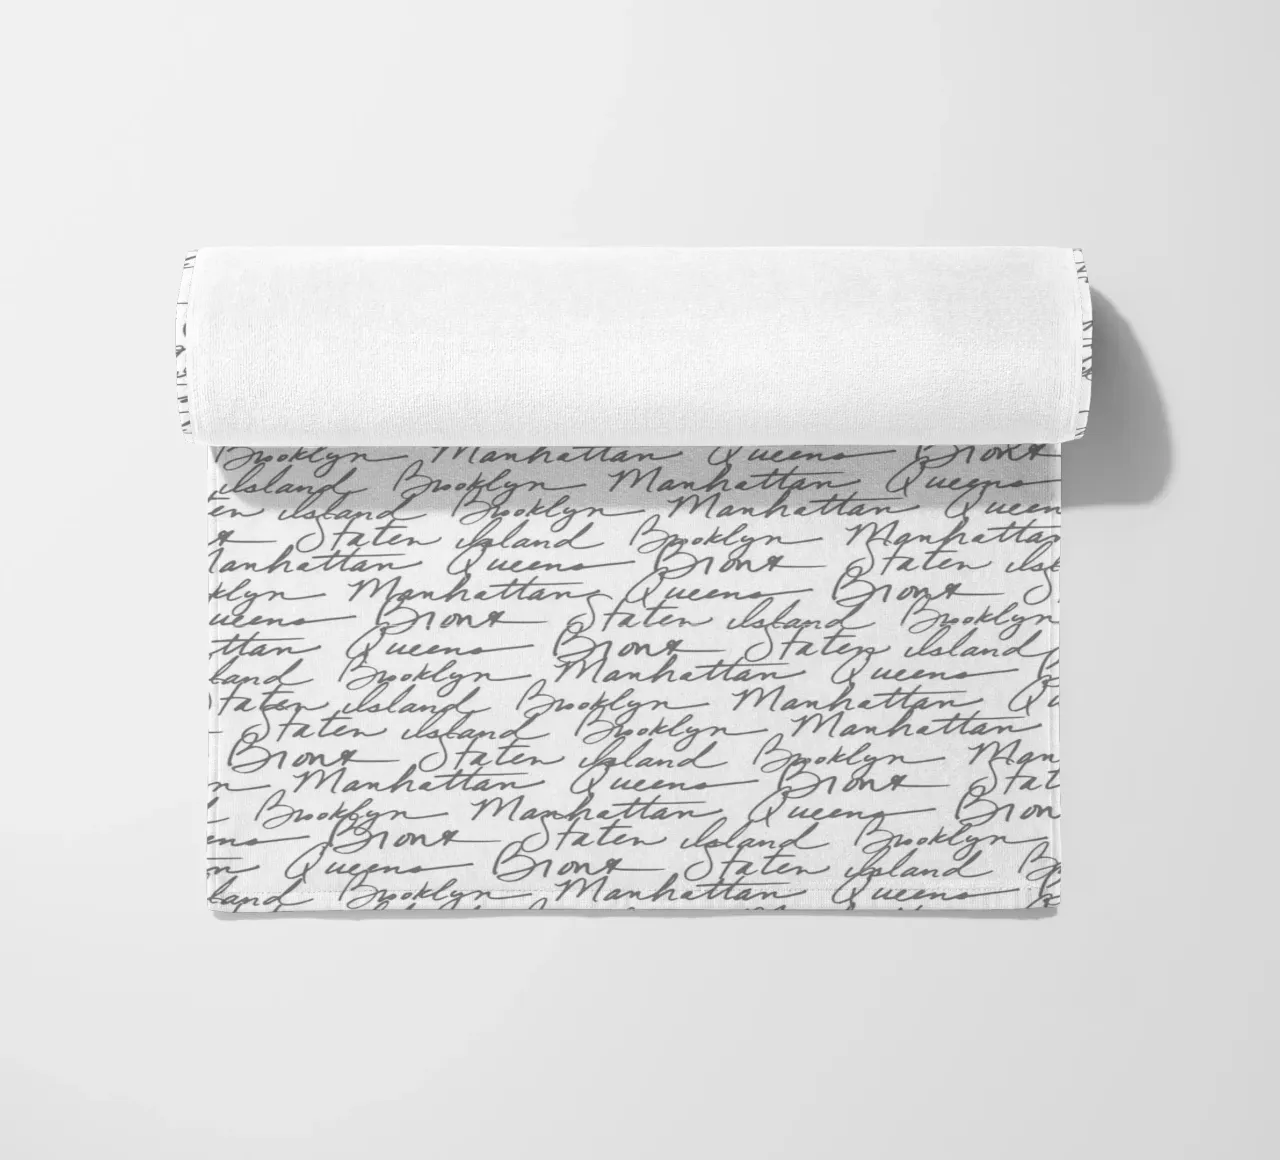 Brooklyn Manhattan Queens Bronx
Island Brooklyn Manhattan Queens
en Island Brooklyn Manhattan Queen
x Staten Island Brooklyn Manhatta
anhattan Queens Bronx Staten Isl
klyn Manhattan Queens Bronx S
ueens Bronx Staten Island Brooklyn
ttan Queens Bronx Staten Island
land Brooklyn Manhattan Queens
Staten Island Brooklyn Manhattan Qu
Staten Island Brooklyn Manhattan
Bronx Staten Island Brooklyn Man
n Manhattan Queens Bronx Stat
Brooklyn Manhattan Queens Bron
ens Bronx Staten Island Brooklyn
n Queens Bronx Staten Island B
land Brooklyn Manhattan Queens B